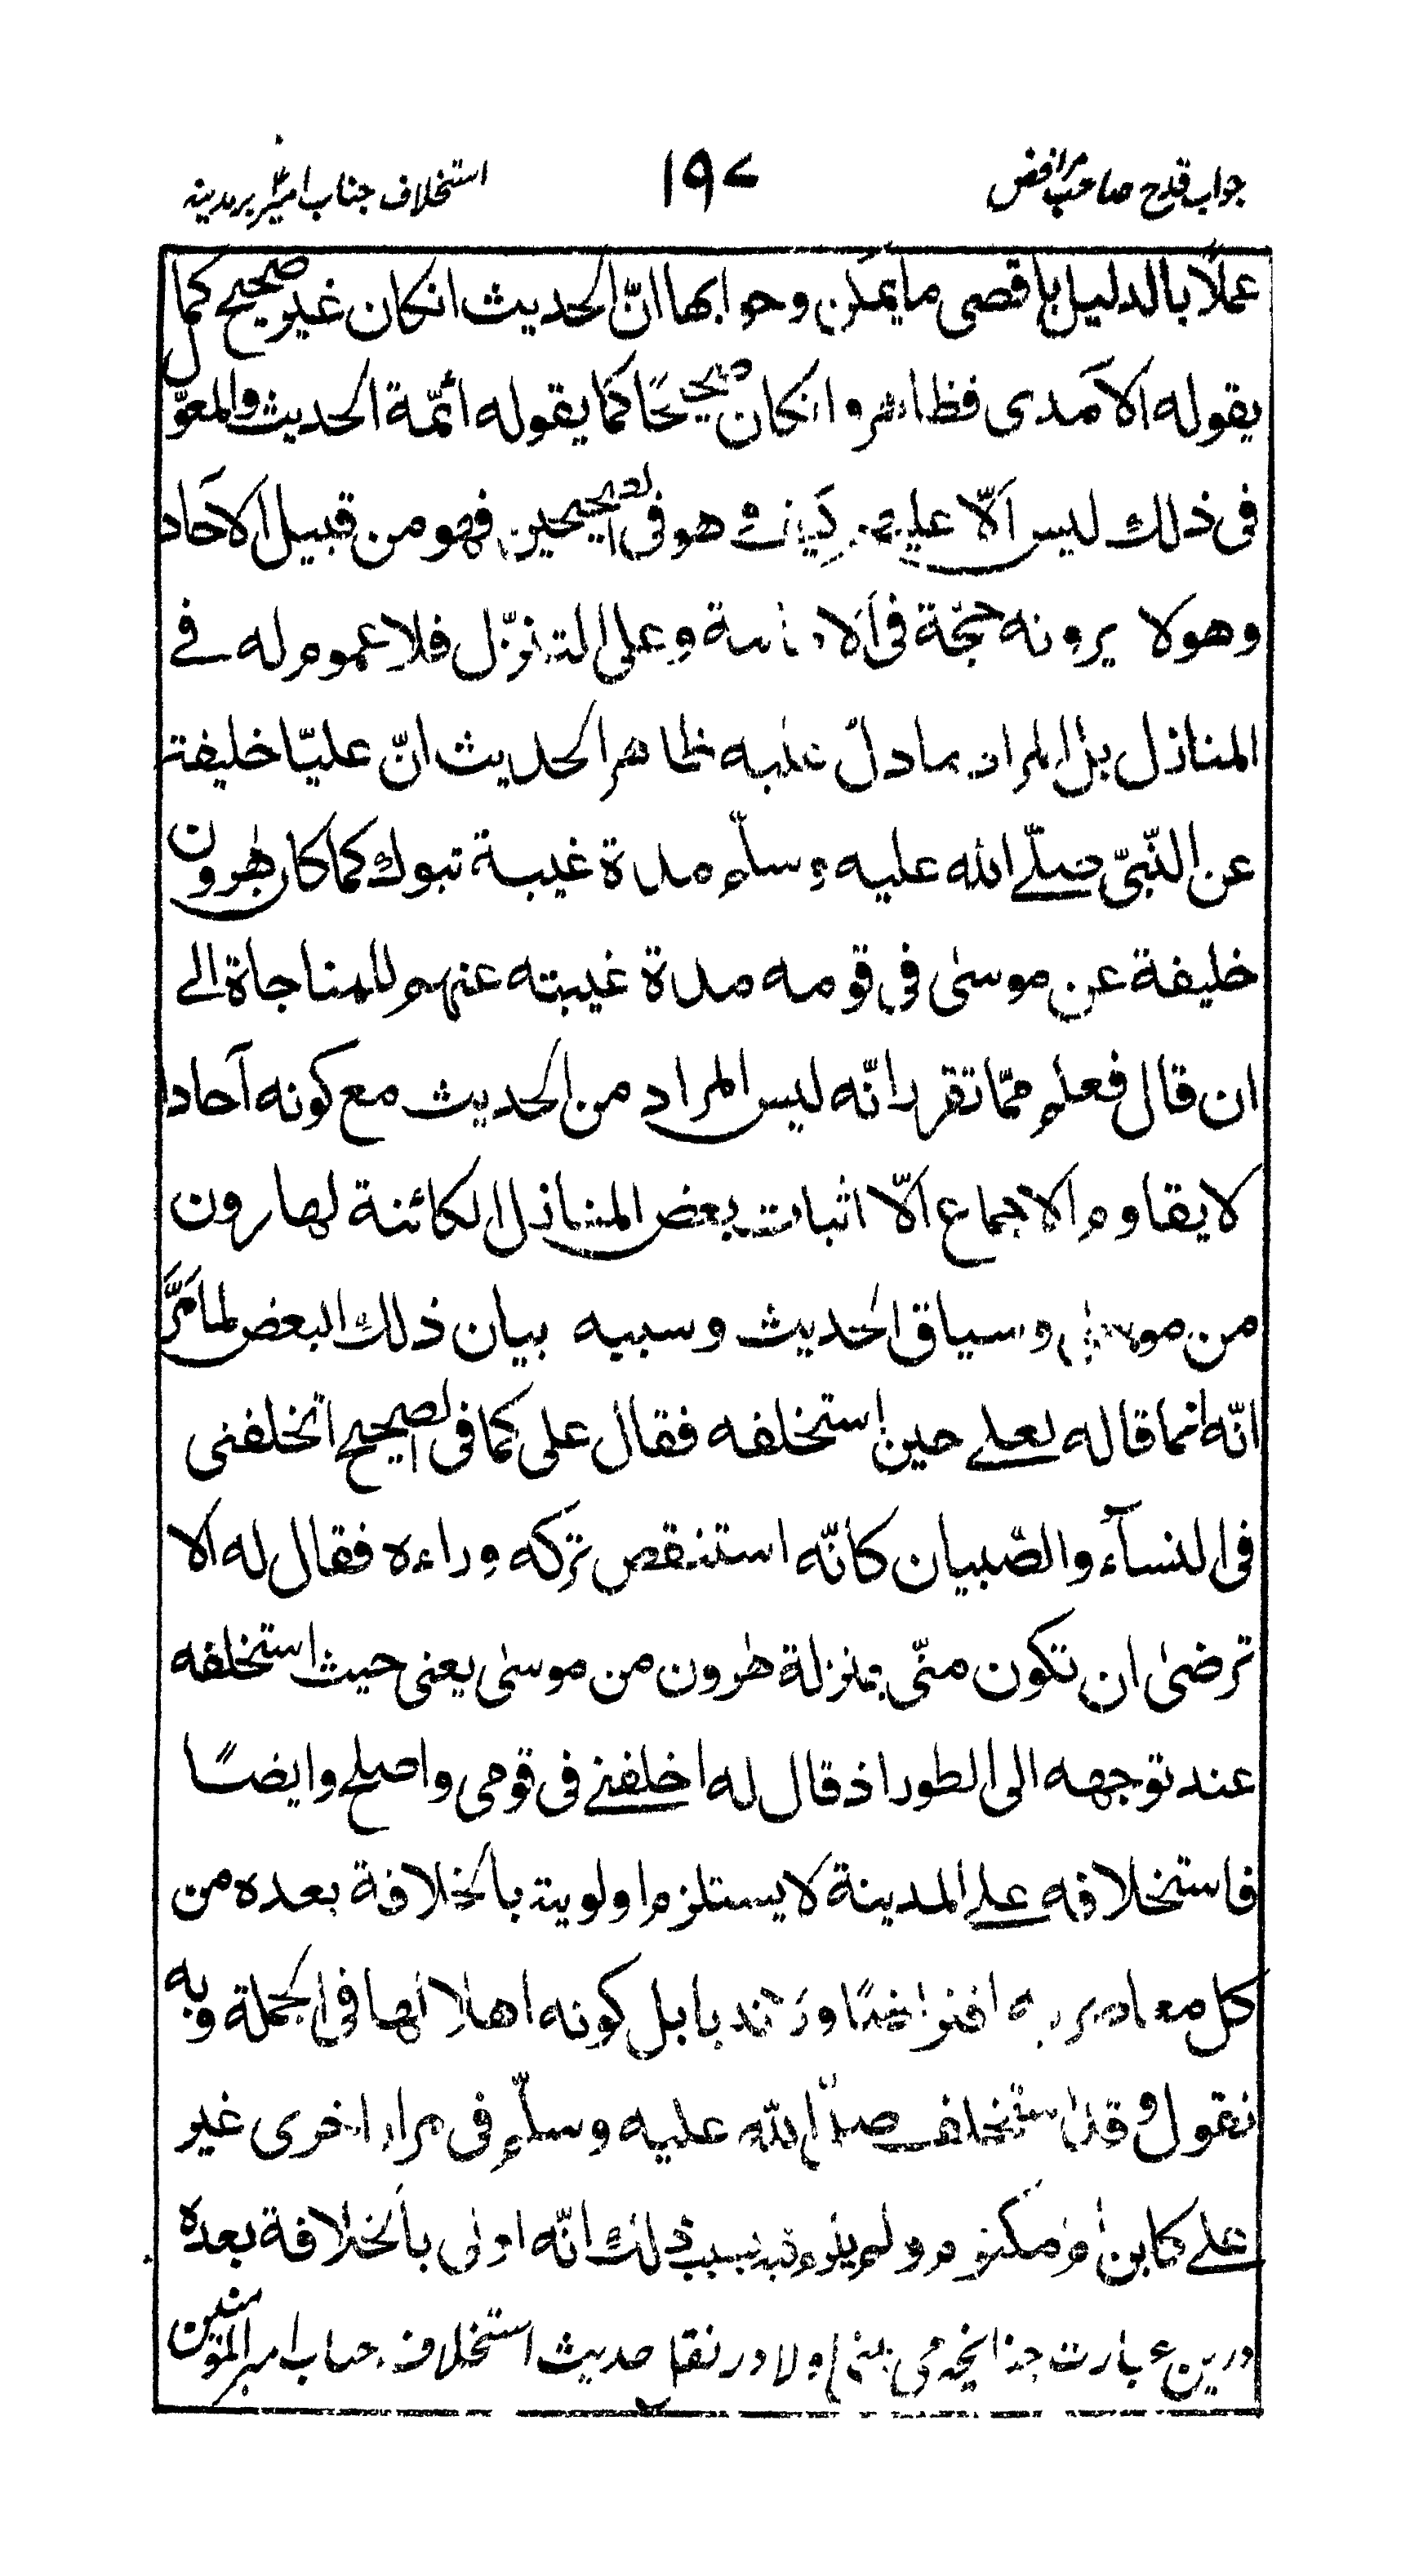 جواب قدح صاحب مرافض ١٩٧ استخلاف جناب امیر بر مدینه
عملًا بالدلیل باقصی مایمکن وجوابها انّ الحدیث انکان غیر صحیح کما
یقوله الآمدی فظاهر وانکان صحیحًا کما یقوله ائمّة الحدیث والمعوّل
فی ذلك لیس الّا علیهم کیف وهو فی الصحیحین فهو من قبیل الآحاد
وهو لا یرونه حجّة فی الامامة وعلی التنزّل فلا عموم له فے
المنازل بل المراد مادلّ علیه ظاهر الحدیث انّ علیّا خلیفة
عن النّبیّ صلّے الله علیه وسلّم مدة غیبة تبوك کما کان هٰرون
خلیفة عن موسیٰ فی قومه مدة غیبته عنهم للمناجاة الے
ان قال فعلم ممّا تقرر انّه لیس المراد من الحدیث مع کونه آحادا
لا یقاوم الاجماع الّا اثبات بعض المنازل الکائنة لهارون
من موسیٰ وسیاق الحدیث وسببه بیان ذلك البعض لما مرّ
انّه انما قاله لعلے حین استخلفه فقال علی کما فی الصحیح اتخلفنی
فی النسآء والصّبیان کانّه استنقص ترکه وراءه فقال له الا
ترضیٰ ان تکون منّی بمنزلة هٰرون من موسیٰ یعنی حیث استخلفه
عند توجهه الی الطور اذ قال له اخلفنے فی قومی واصلح وایضًا
فاستخلافه علے المدینة لا یستلزم اولویته بالخلافة بعده من
کل معاصریه افتراضًا وندبا بل کونه اهلا لها فی الجملة وبه
نقول وقد استخلف صلّے الله علیه وسلّم فی مرار اخری غیر
علے کابن امّ مکتوم ولم یلزم فیه بسبب ذلك انّه اولی بالخلافة بعده
درین عبارت چنانچه می بینی اولا در نقل حدیث استخلاف جناب امیر المؤمنین